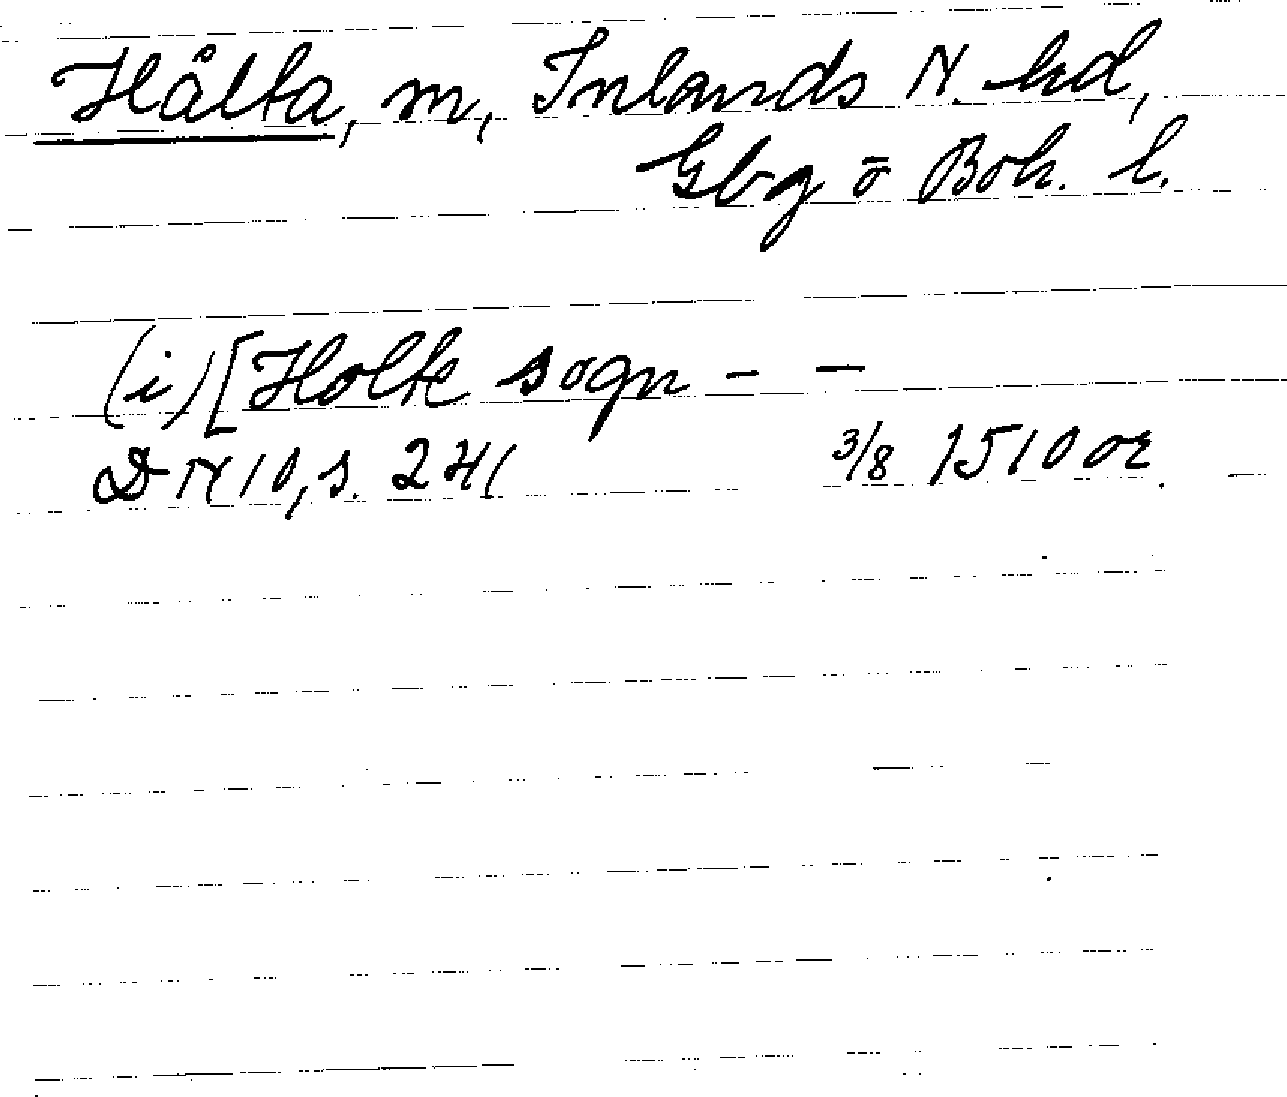 Hålta, m, Inlands N. hd,
Gbg o Boh. l.
(i) [Holte sogn - -
DN 10, s. 241 3/8 1510 or.